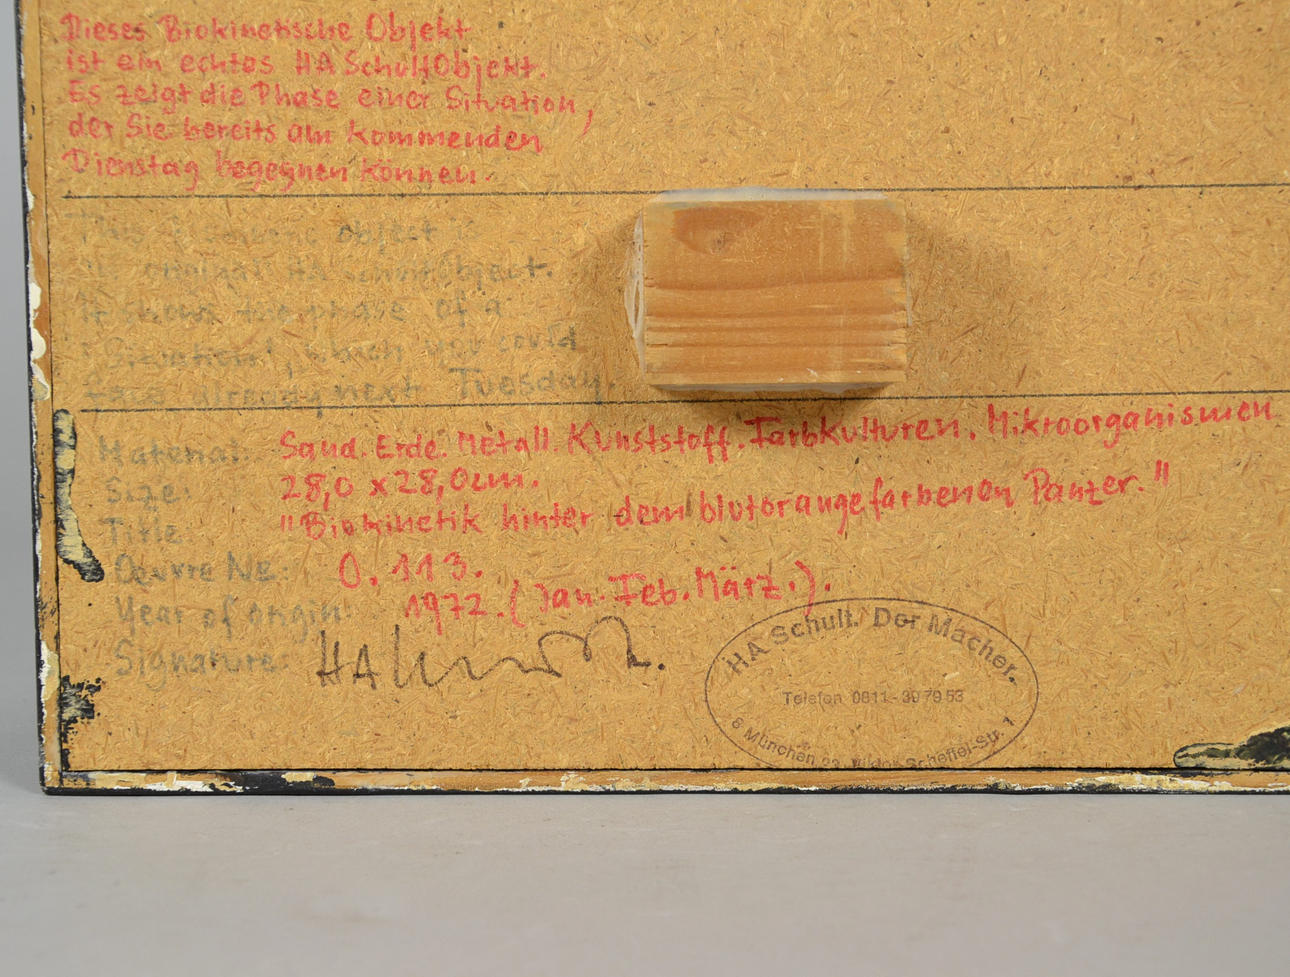 Dieses Biokinetische Objekt
ist ein echtes HA Schult Objekt.
Es zeigt die Phase einer Situation,
der Sie bereits am kommenden
Dienstag begegnen können.
This object
original HA Schult Object.
It shows the phase of a
Situation, which you could
face already next Tuesday.
Material: Sand. Erde. Metall. Kunststoff. Farbkulturen. Mikroorganismen
Size: 28,0 x 28,0cm.
Title: "Biokinetik hinter dem blutorangefarbenen Panzer."
Oeuvre No: O. 113.
Year of origin: 1972. (Jan. Feb. März.).
Signature: HA Schult.
HA Schult. Der Macher.
Telefon 0811-39 79 53
8 München 23 Scheffel-Str. 1